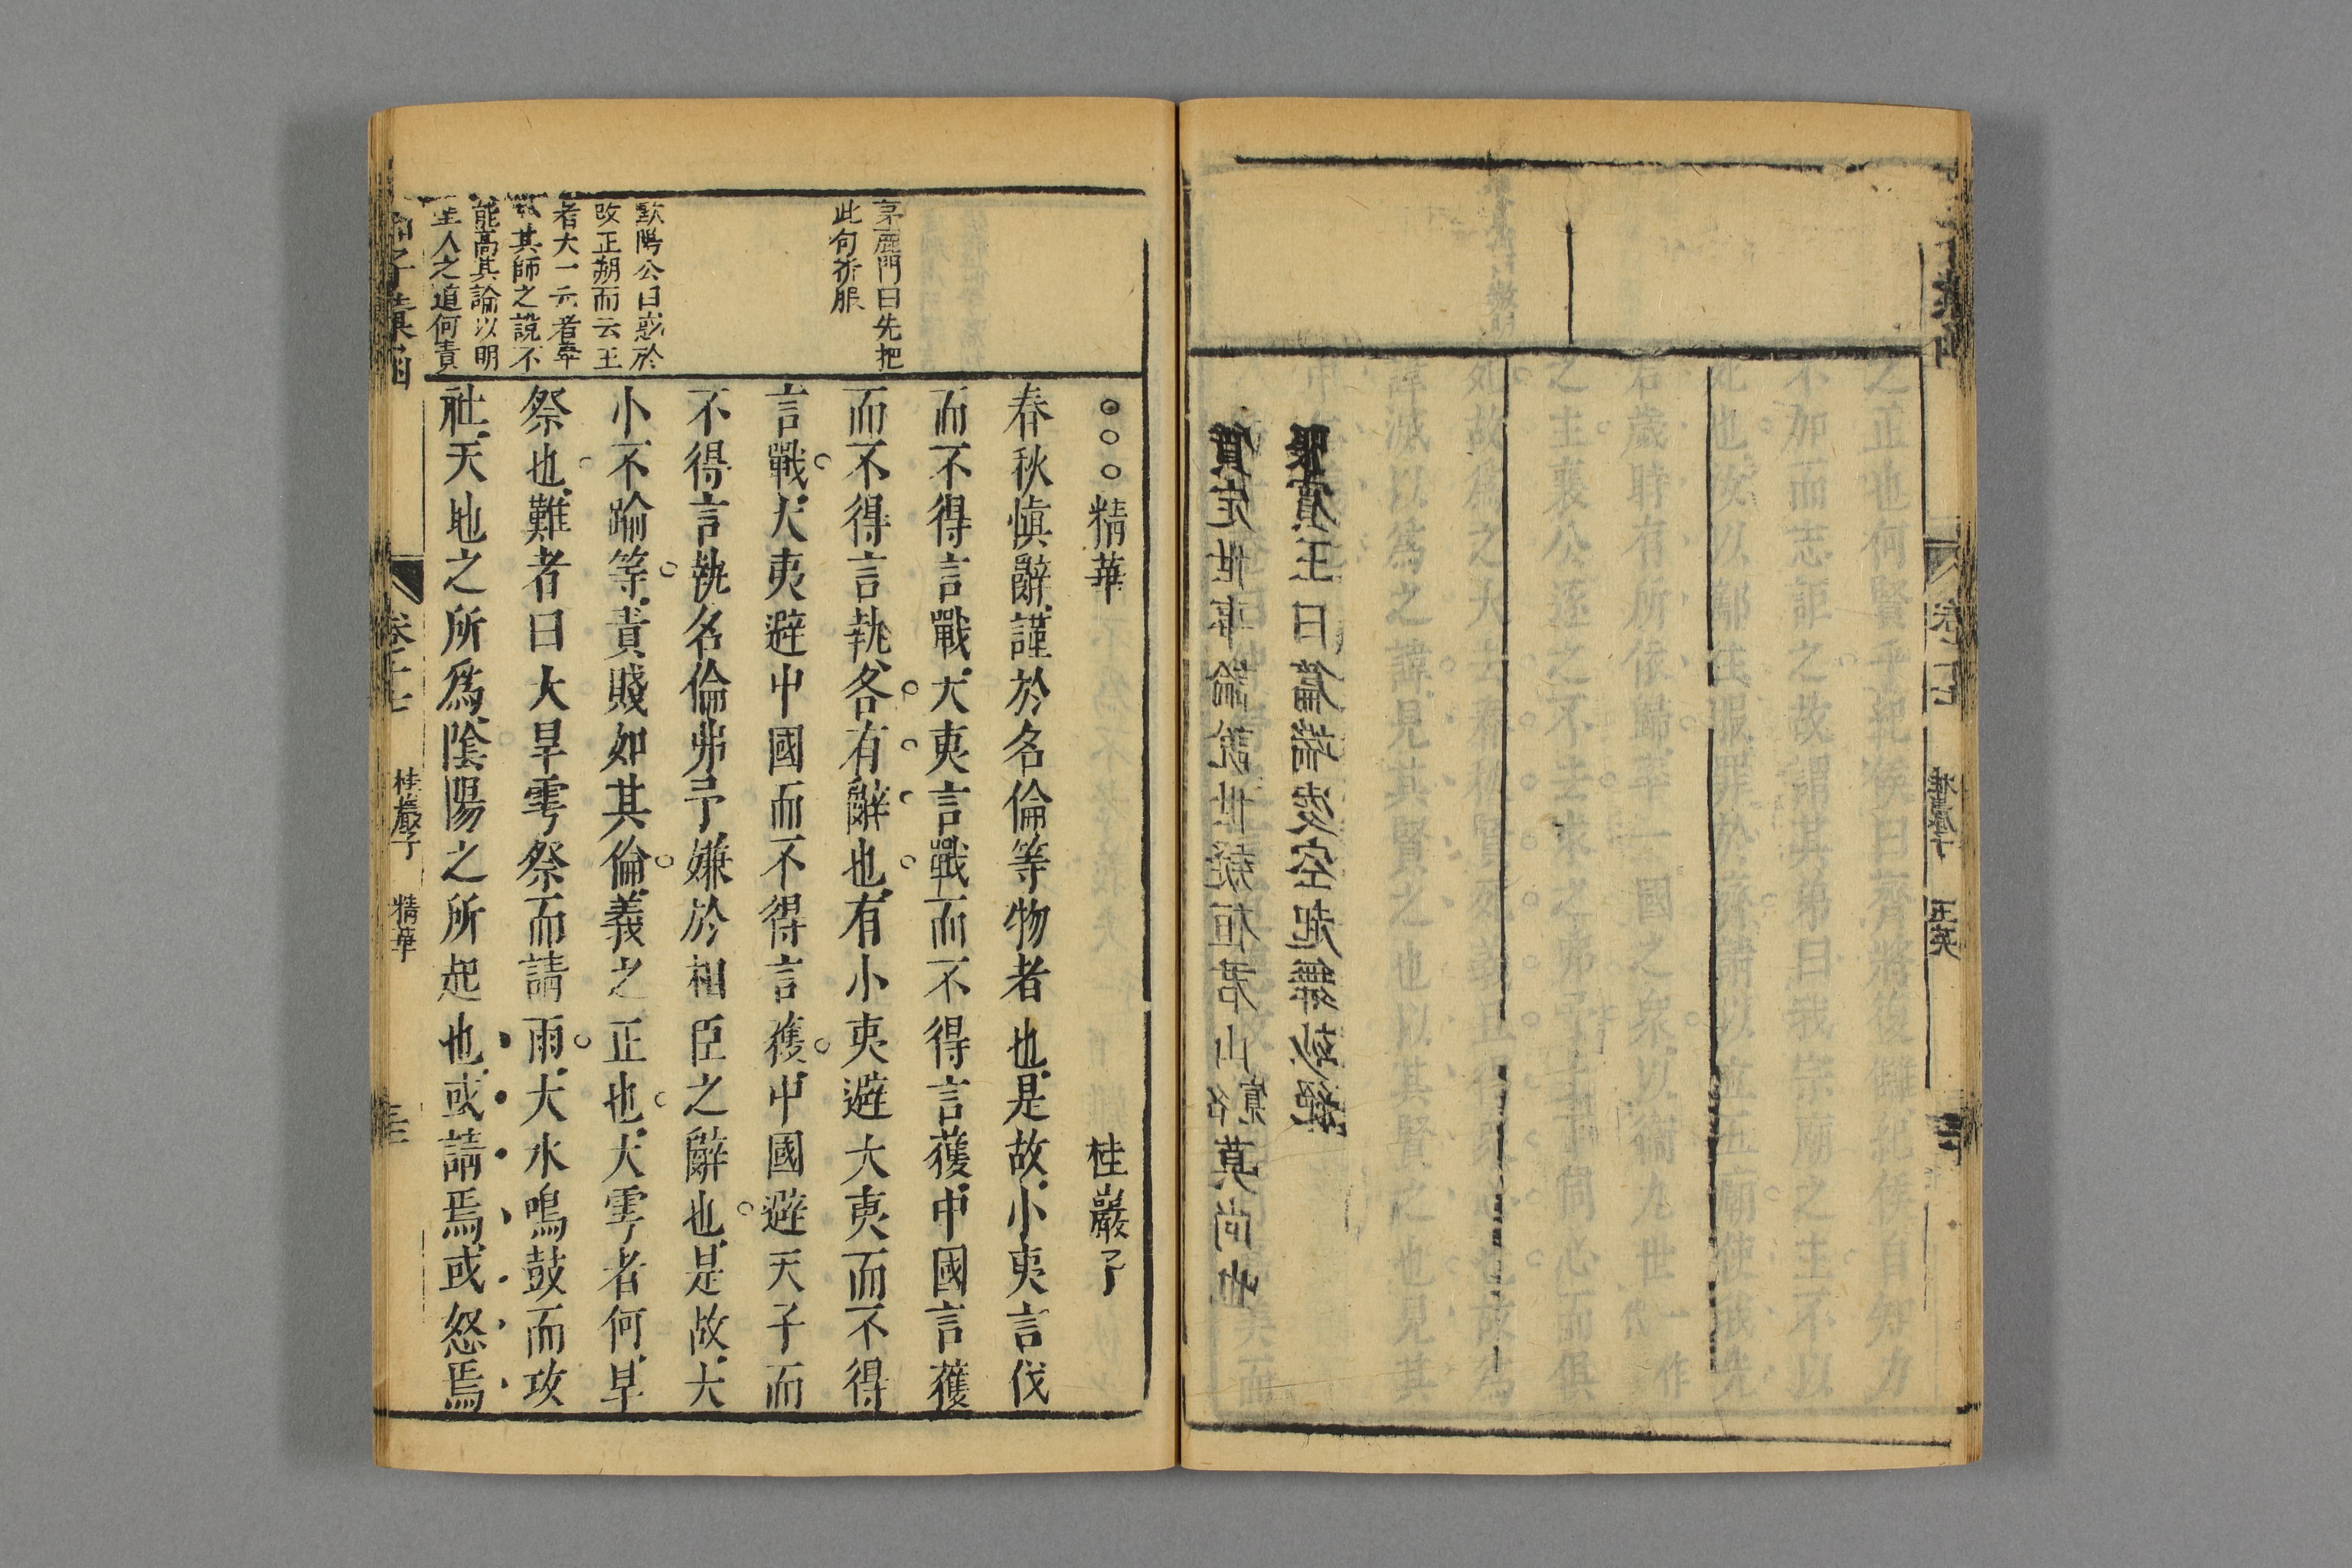 卷十七　桂巖子　玉英
之正也何賢乎紀侯曰齊將復讎紀侯自知力
不加而志距之故謂其弟曰我宗廟之主不以
死也汝以酅往服罪於齊請以立五廟使我先
君歲時有所依歸率一國之衆以衛九世
之主襄公逐之不去求之弗予上下同心而俱
死故爲之大去春秋賢死義且得衆心也故爲
諱滅以爲之諱見其賢之也以其賢之也見其
張賓王曰篇端凌空起舞妙絕
質定世事論說世疑桓君山莫尚也
○○○精華　桂巖子
春秋愼辭謹於名倫等物者也是故小夷言伐
而不得言戰大夷言戰而不得言獲中國言獲
而不得言執各有辭也有小夷避大夷而不得
言戰大夷避中國而不得言獲中國避天子而
不得言執名倫弗予嫌於相臣之辭也是故大
小不踰等貴賤如其倫義之正也大雩者何旱
祭也難者曰大旱雩祭而請雨大水鳴鼓而攻
社天地之所爲陰陽之所起也或請焉或怒焉
茅鹿門曰先把
此句折服
歐陽公曰惑於
改正朔而云王
者大一元者牽
其師之說不
能高其論以明
聖人之道何責
卷十七　桂巖子　精華